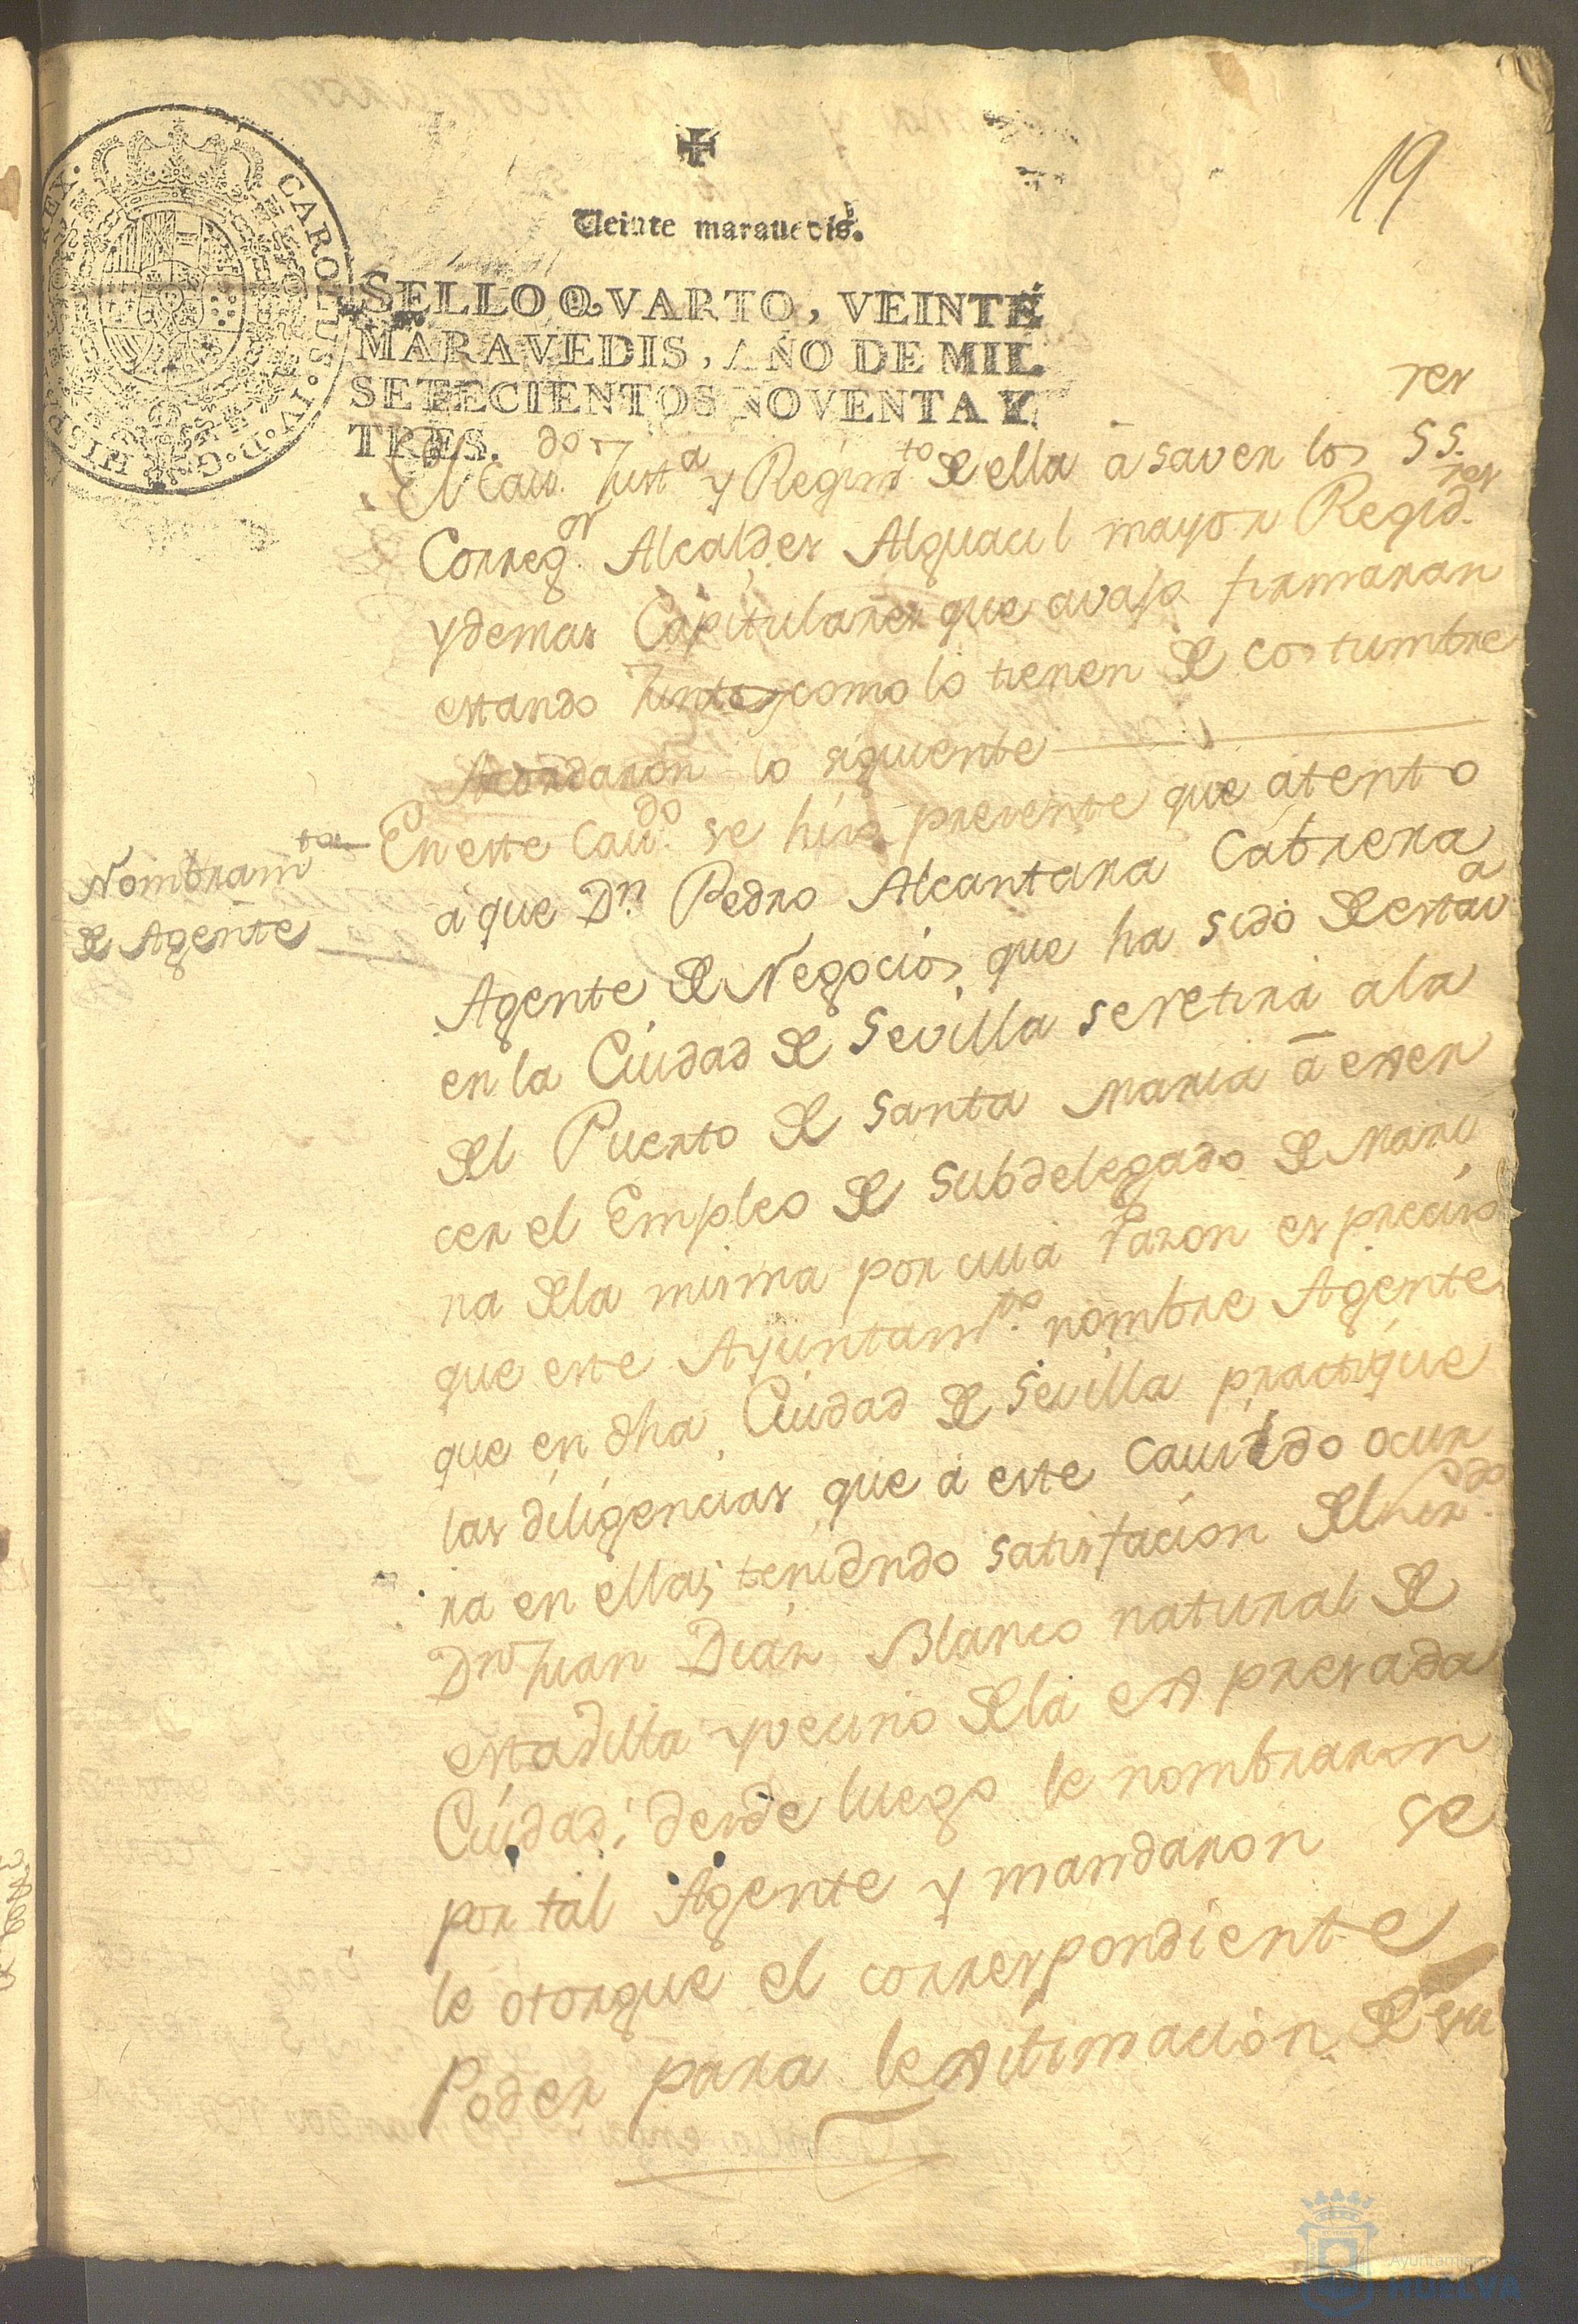 19
✠
Veinte maravedis.
SELLO QVARTO, VEINTE
MARAVEDIS, AÑO DE MIL
SETECIENTOS NOVENTA Y
TRES.
CAROLUS. IV. D. G. HISP. REX.
El Cavdo. Justa y Regimto de ella á saver los SS.res
Corregor. Alcaldes Alguacil mayor Regidres.
y demas Capitulares que avajo firmaran
estando Juntos como lo tienen de costumbre
Acordaron lo siguiente
Nombramto
de Agente
En este Cavdo. se hiso presente que atento
á que Dn. Pedro Alcantara Cabrera
Agente de Negocios que ha sido de esta va
en la Ciudad de Sevilla se retira a la
del Puerto de Santa Maria á exer
cer el Empleo de Subdelegado de Mari
na de la misma por cuia razon es preciso
que este Ayuntamto. nombre Agente
que en dha Ciudad de Sevilla practique
las diligencias que á este Cavildo ocur
ra en ellas; teniendo satisfacion del
Dn Juan Diaz Blanco natural de
esta dilla y vecino de la expresada
Ciudad; desde luego le nombraron
por tal Agente y mandaron se
le otorgue el correspondiente
Poder para lexitimacion de su
Ayuntamiento de
HUELVA